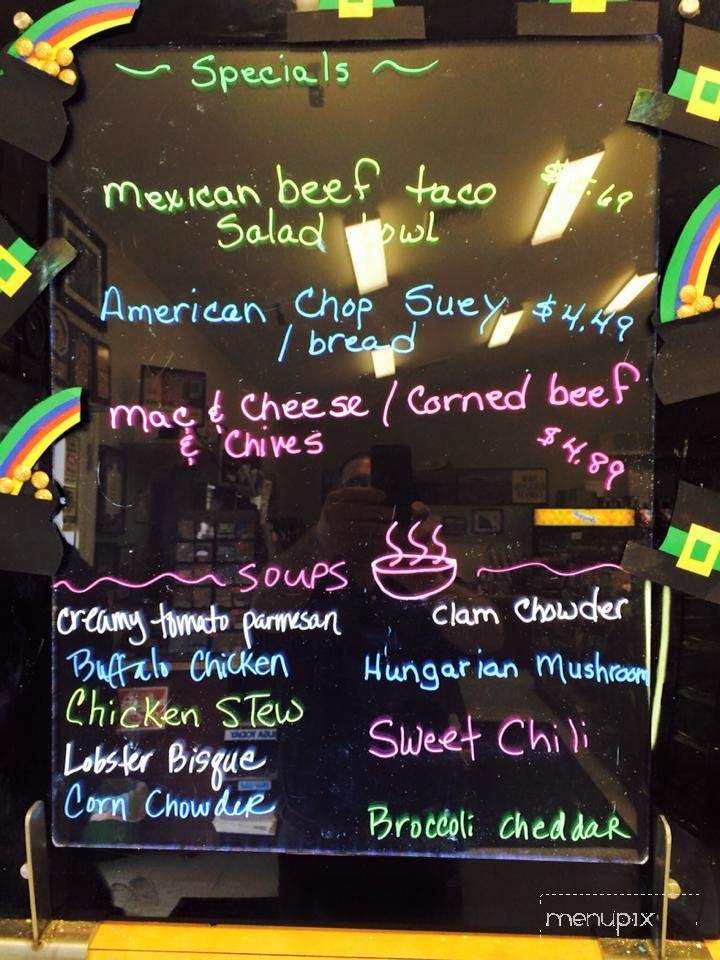 Specials
Mexican beef taco
Salad
American Chop Suey $4.49
/ bread
Mac & Cheese / Corned beef
& Chives $4.89
SOUPS
creamy tomato parmesan
Clam Chowder
Buffalo Chicken
Hungarian Mushroom
Chicken Stew
Sweet Chili
Lobster Bisque
Corn Chowder
Broccoli cheddar
menupix